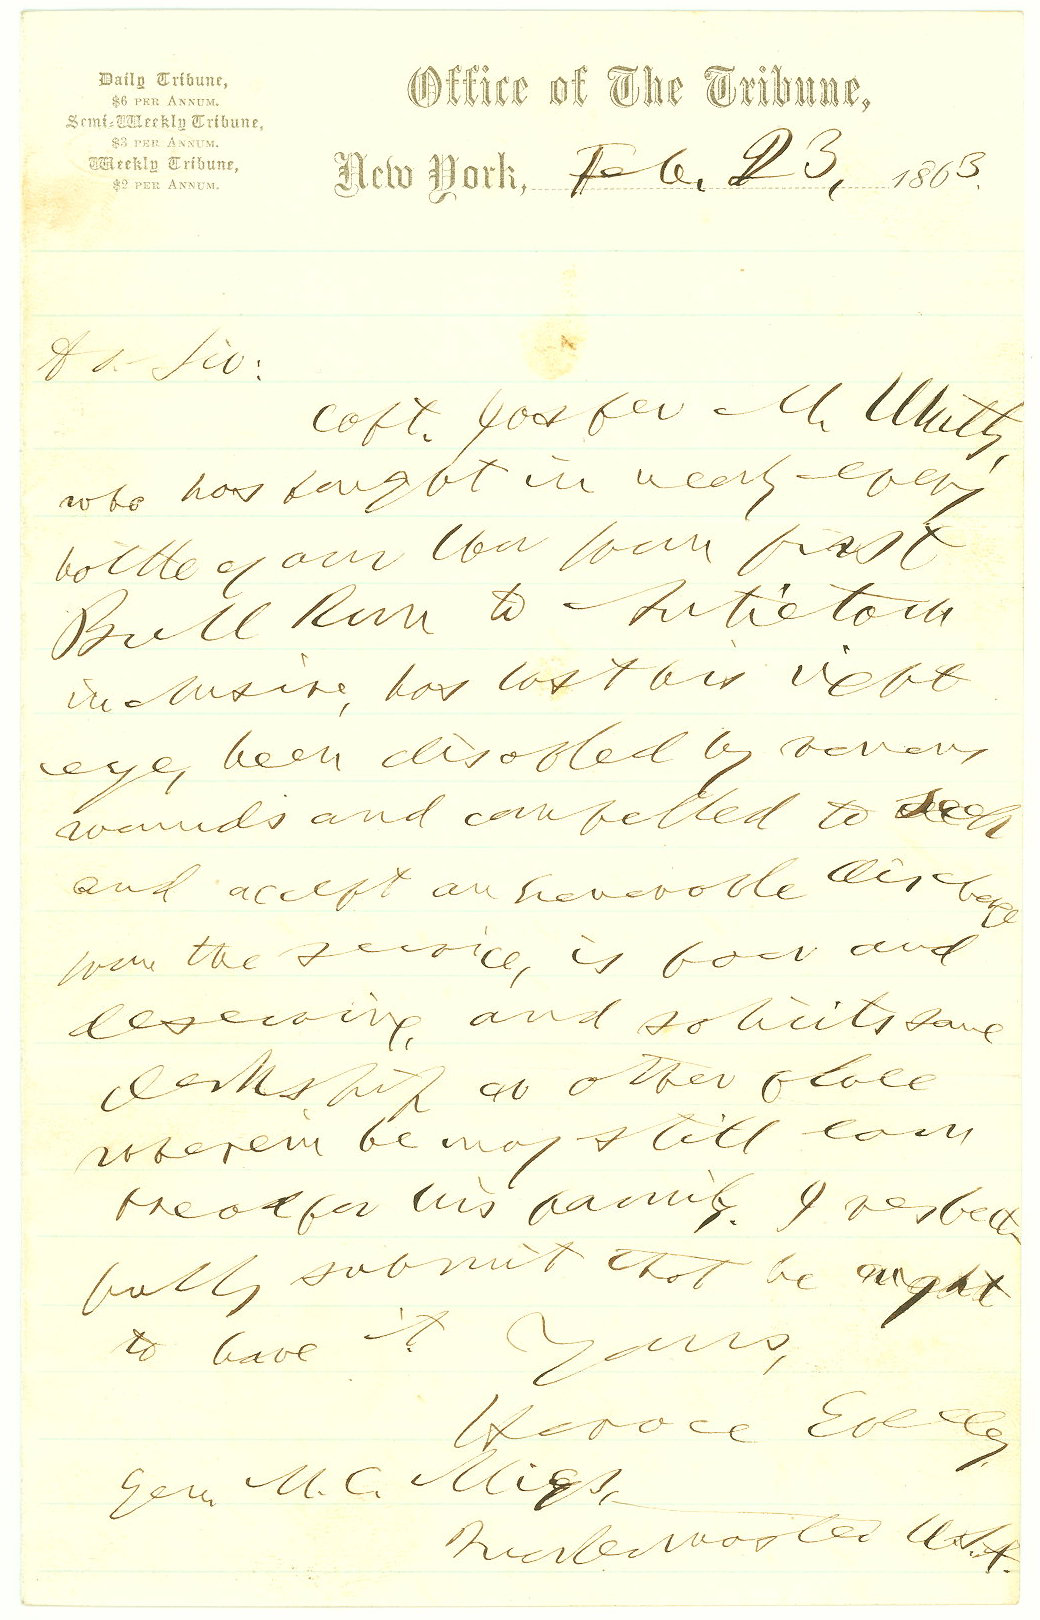 Daily Tribune,
$6 PER ANNUM.
Semi-Weekly Tribune,
$3 PER ANNUM.
Weekly Tribune,
$2 PER ANNUM.
Office of The Tribune,
New York, Feb. 23, 1863.
Sir:
Capt. Jasper M. Whitty,
who has fought in nearly every
battle of our War from first
Bull Run to Antietam
inclusive, has lost his right
eye, been disabled by various
wounds and compelled to seek
and accept an honorable discharge
from the service, is poor and
deserving, and solicits some
clerkship or other place
wherein he may still earn
bread for his family. I respect-
fully submit that he ought
to have it. Yours,
Horace Greeley.
Gen. M. C. Meigs,
Quartermaster U.S.A.